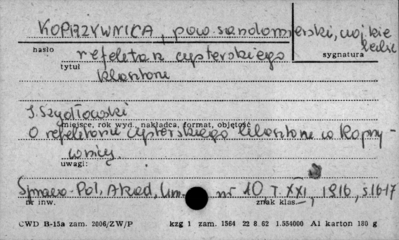 KOPRZYWNICA, pow. sandomierski, woj. kie
leckie
hasło sygnatura
refektarz cysterskiego
tytuł
klasztoru
J. Szydłowski
miejsce, rok wyd., nakładca, format, objętość
O refektarzu cysterskiego klasztoru w Koprzy-
wnicy.
uwagi:
Spraw. Pol. Akad. Um. nr 10 T. XXI, 1916, s.16-17
nr inw. znak klas.
CWD B-15a zam. 2006/ZW/P kzg 1 zam. 1564 22 8 62 1.554000 A1 karton 180 g